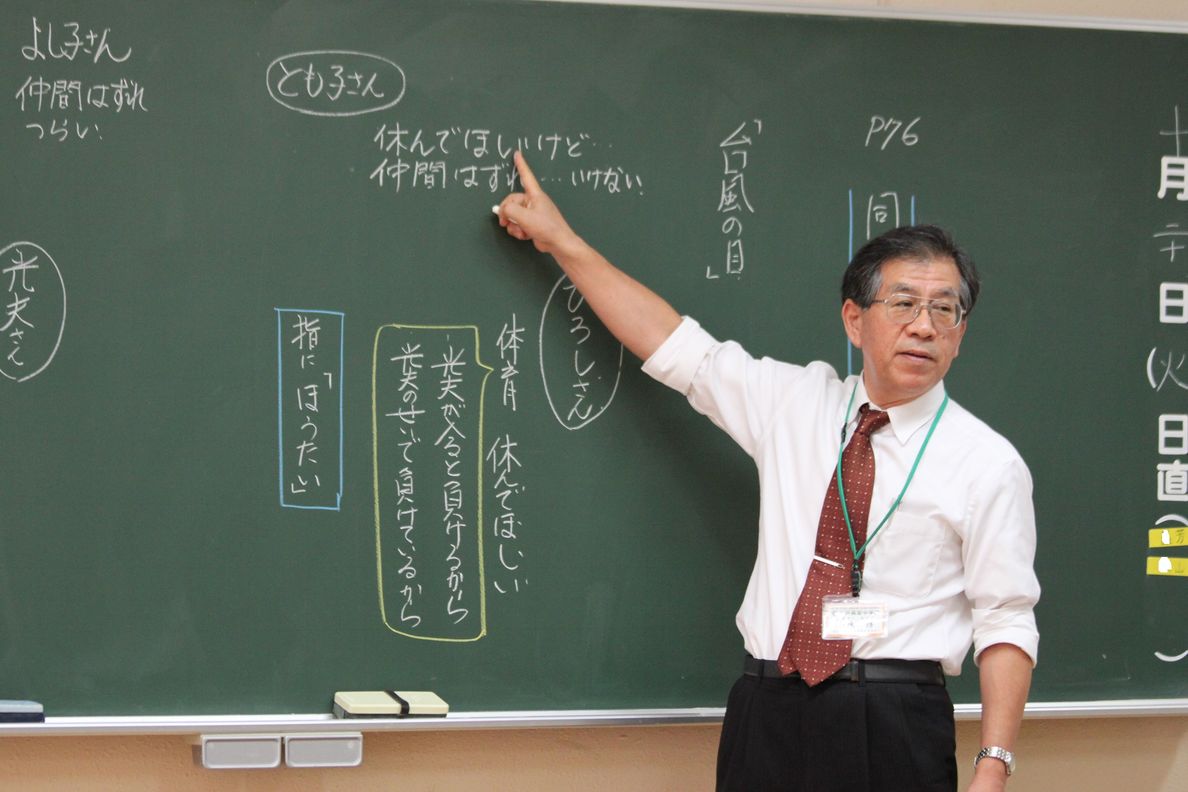 十月二十日(火
日直(
芳
山
P76
同
「台風の目」
ひろしさん
体育 休んでほしい
光夫が入ると負けるから
光夫のせいで負けているから
指に「ほうたい」
とも子さん
休んでほしいけど…
仲間はずれ…いけない
よし子さん
仲間はずれ
つらい
光夫さん